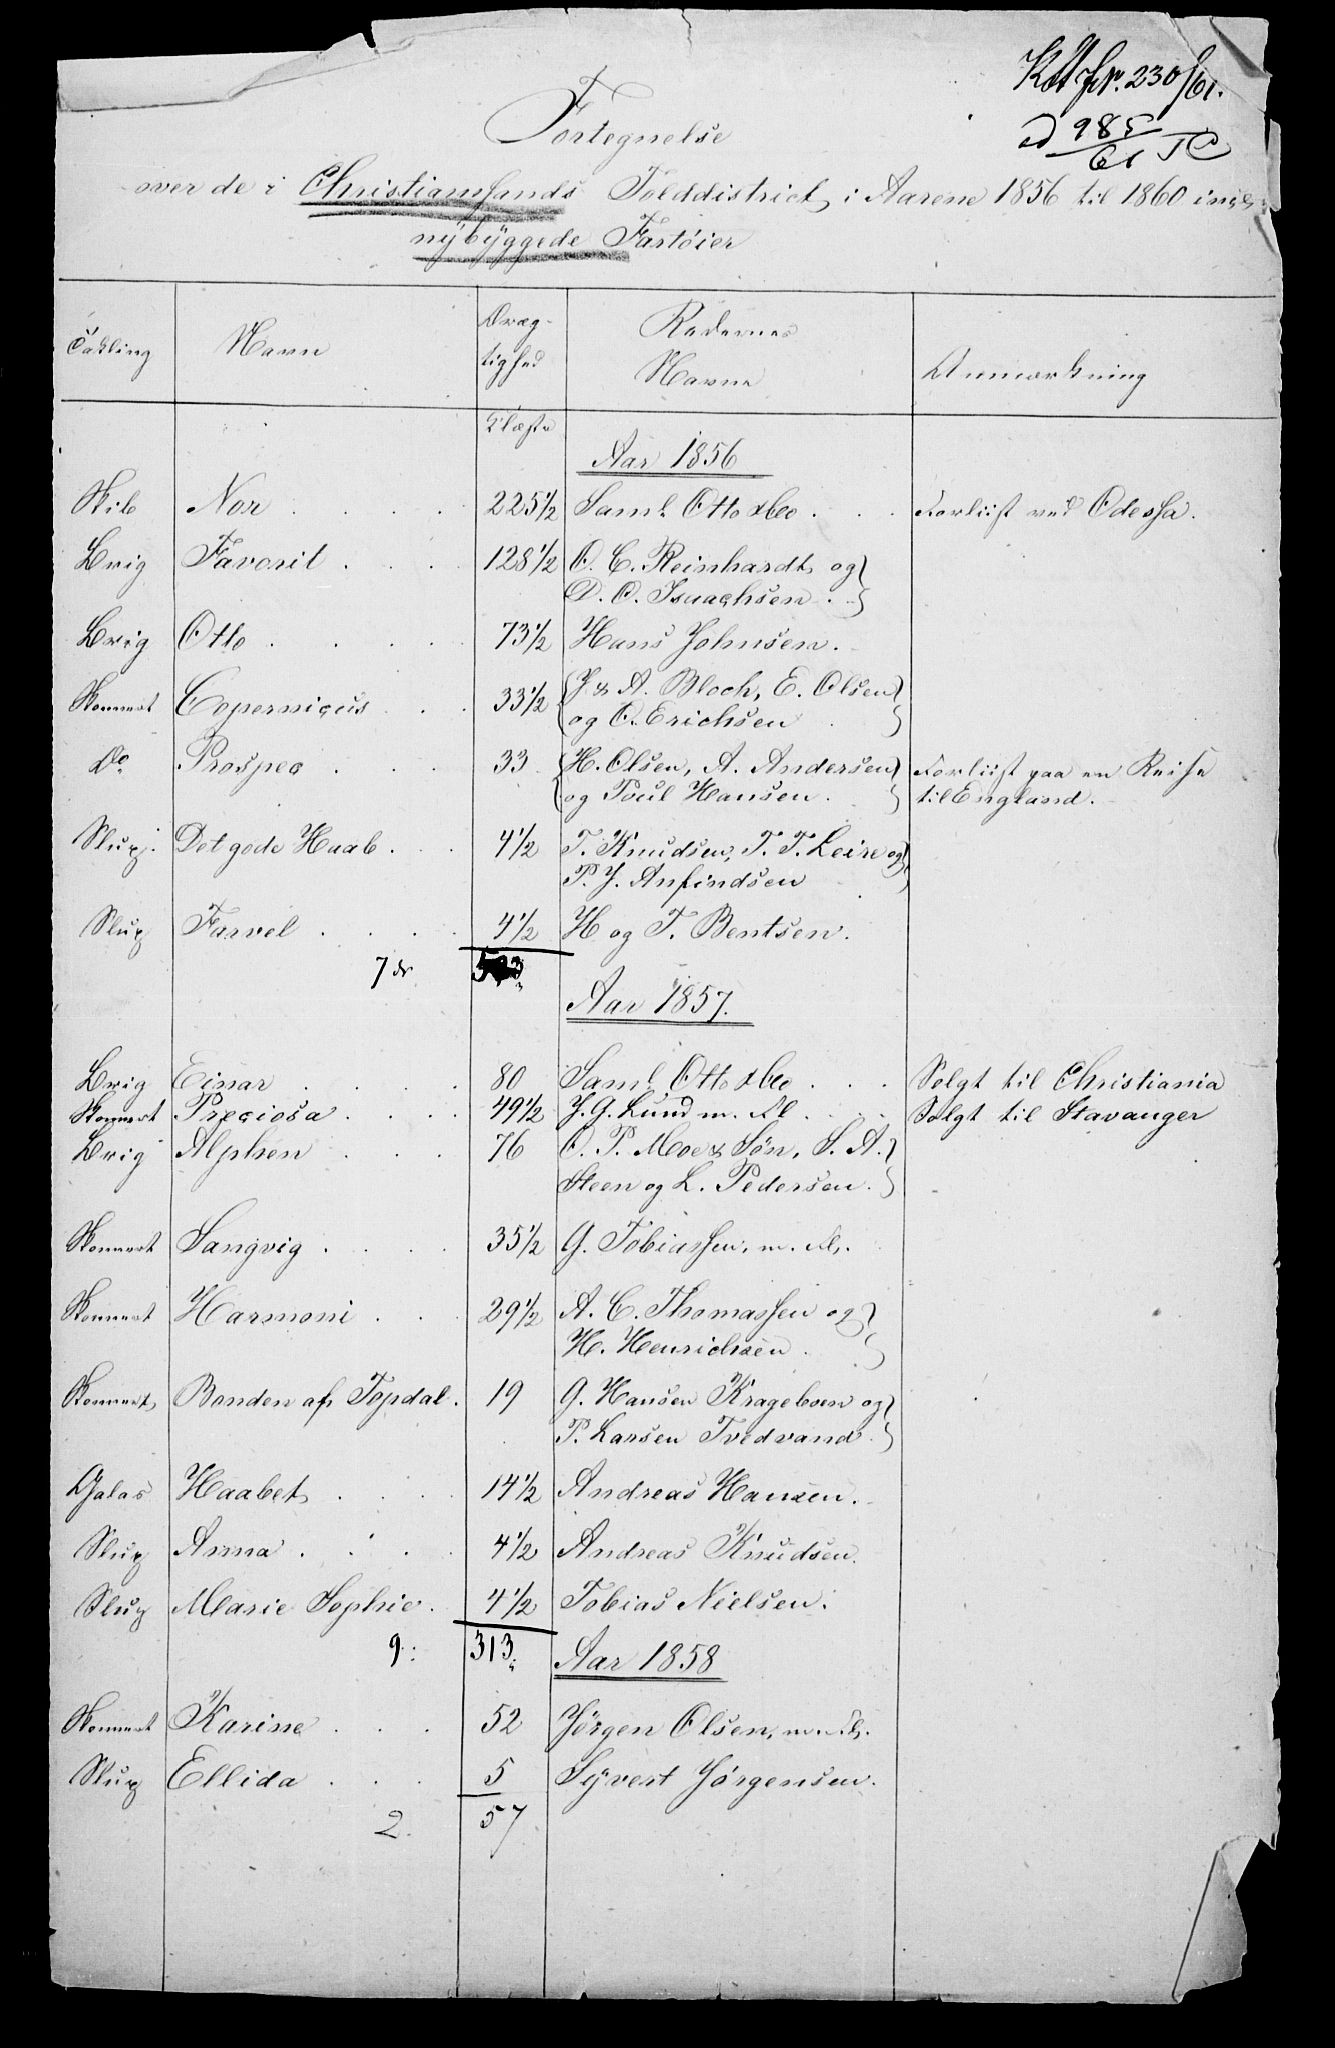 Kst Jr. 230/61.
ad 985/61 TC
Fortegnelse
over de i Christianssands Tolddistrict i Aarene 1856 til 1860 incl.
nybyggede Fartøier
Takling | Navn | Dræg-tighed | Redernes Navne | Anmærkning
Klæster
Aar 1856
Skib | Nor . . . . | 225 1/2 | Saml. Otto & Co . . . | Forliist ved Odessa.
Brig | Favorit . . . | 128 1/2 | O. C. Reinhardt og
D. O. Isaachsen . .
Brig | Otto . . . . | 73 1/2 | Hans Johnsen.
Skonnert | Copernicus . . | 33 1/2 | J & A. Bloch, E. Olsen
og O. Erichsen .
Do. | Prospec . . . | 33 | H. Olsen, A. Andersen | Forliist paa en Reise
og Poul Hansen. | til England.
Slup. | Det gode Haab . . | 4 1/2 | T. Knudsen, T. T. Leire og
P. J. Anfindsen
Slup | Farvel . . . . | 4 1/2 | H og T. Bentsen.
7 | 503.
Aar 1857.
Brig | Einar . . . . | 80 | Saml. Otto & Co . . . | Solgt til Christiania
Skonnert | Preciosa . . . | 49 1/2 | J. G. Lund m. Fl . . | Solgt til Stavanger
Brig | Alphen . . . | 76 | O. P. Moe & Søn, S. A.
Steen og L. Pedersen.
Skonnert | Sangvig . . . . | 35 1/2 | G. Tobiassen, m. Fl.
Skonnert | Harmoni . . . | 29 1/2 | A. C. Thomassen og
H. Henrichsen .
Skonnert | Bonden af Topdal . | 19 | G. Hansen Krageboen og
P. Larsen Tvedvand .
Galas | Haabet . . . . | 14 1/2 | Andreas Hansen .
Slup | Anna . . . . | 4 1/2 | Andreas Knudsen.
Slup | Marie Sophie . | 4 1/2 | Tobias Nielsen.
9. | 313.
Aar 1858
Skonnert | Karine . . . | 52 | Jørgen Olsen, m. Fl.
Slup | Ellida . . . | 5 | Syvert Jørgensen.
2. | 57